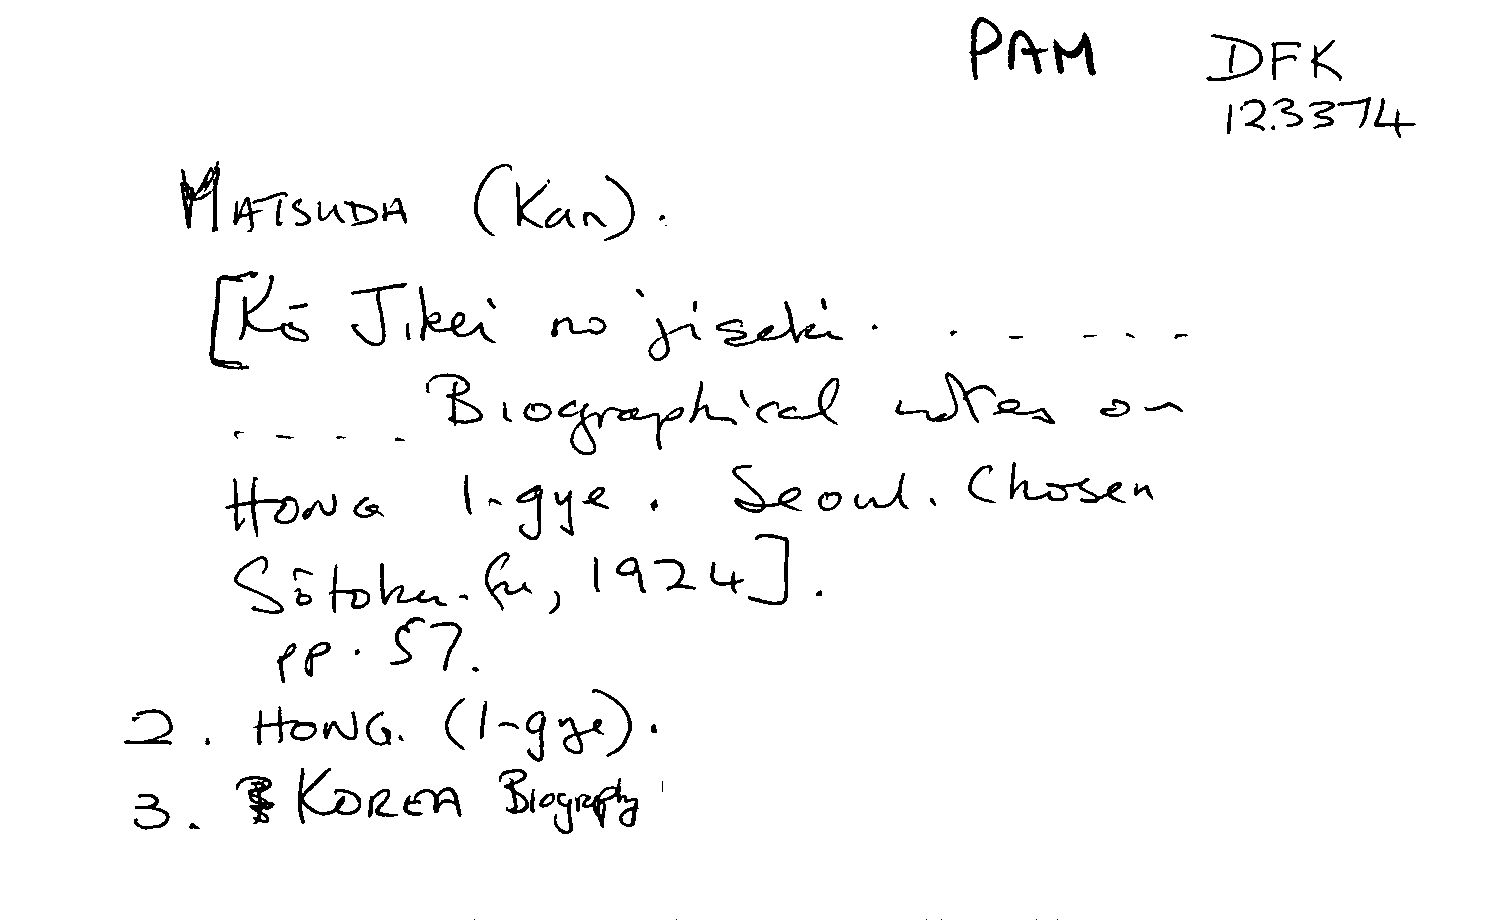 PAM DFK
12.3374
MATSUDA (Kan).
[Kō Jikei no jiseki . . . . . . .
. . . . . Biographical notes on
HONG I-gye. Seoul. Chosen
Sōtoku-fu, 1924].
pp. 57.
2. HONG. (I-gye).
3. KOREA Biography